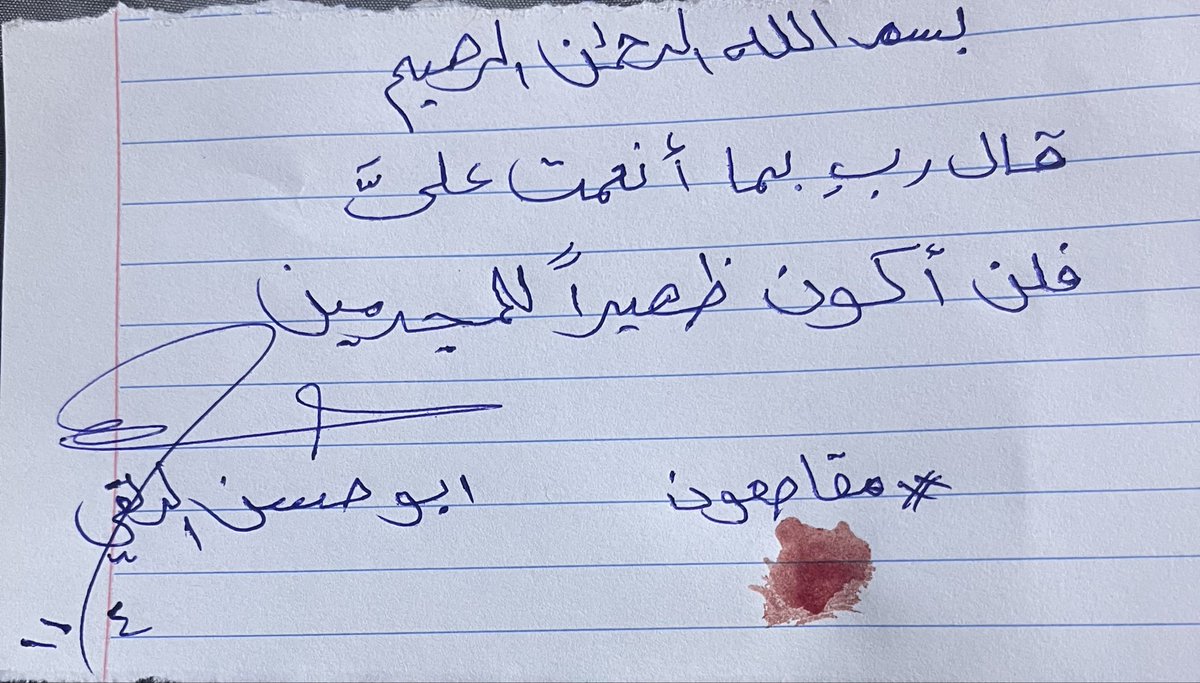 بسم الله الرحمن الرحيم
قال ربِ بما أنعمت علىَّ
فلن أكون ظهيراً للمجرمين
#مقاطعون
ابو حسن الرقي
٤